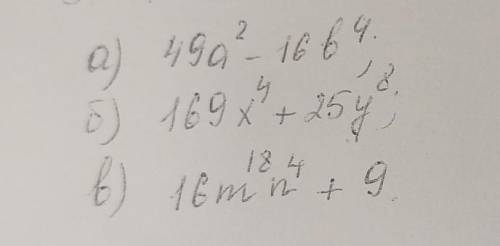 а) 49a² - 16b⁴;
б) 169x⁴ + 25y⁸;
в) 16m¹⁸n⁴ + 9.